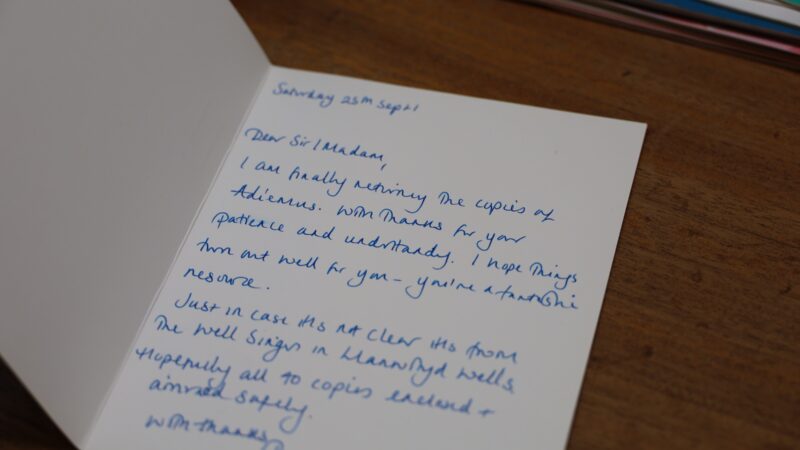 Saturday 25th Sept
Dear Sir/Madam,
I am finally returning the copies of
Adiemus. With thanks for your
patience and understanding. I hope things
turn out well for you - you're a fantastic
resource.
Just in case it's not clear it's from
The Well Singers in Llanwrtyd Wells.
Hopefully all 40 copies enclosed +
arrived safely.
With thanks